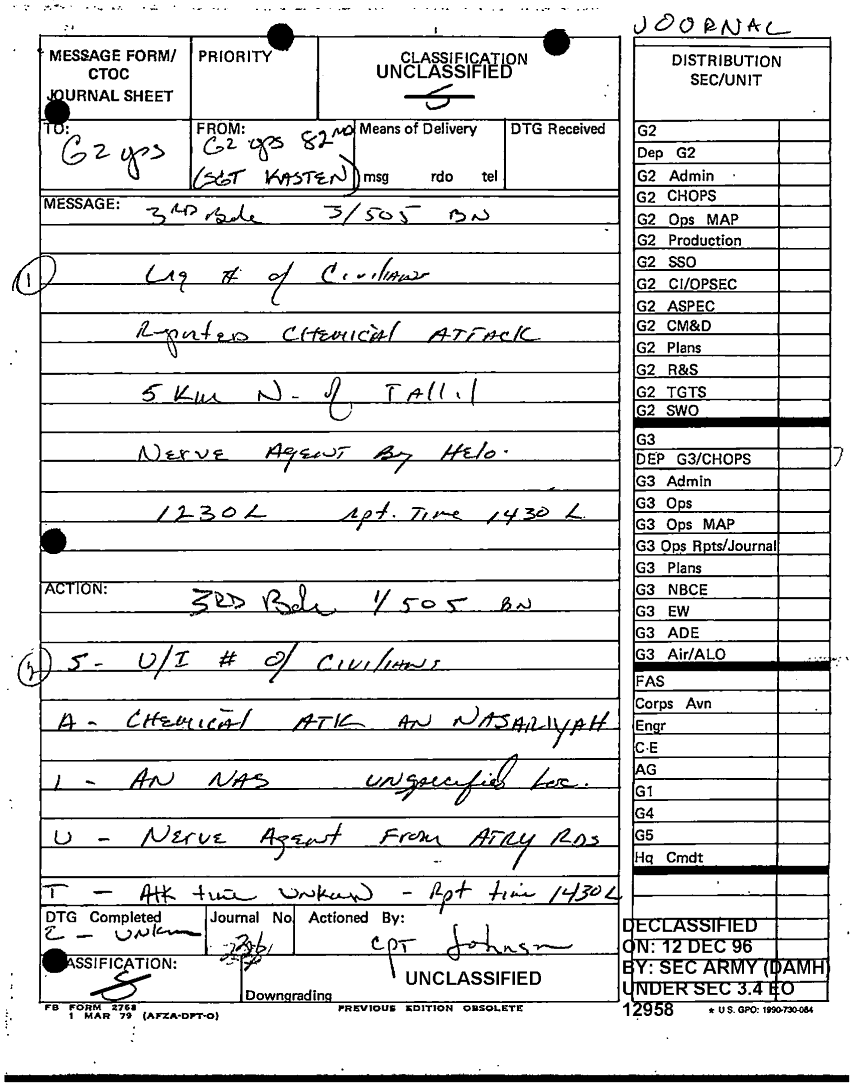 JOURNAL
MESSAGE FORM/
CTOC
JOURNAL SHEET
PRIORITY
CLASSIFICATION
UNCLASSIFIED
S
TO:
G2 ops
FROM:
G2 ops 82ND
(SGT KASTEN)
Means of Delivery
msg rdo tel
DTG Received
MESSAGE:
3RD Bde 3/505 BN
1 Lrg # of Civilians
Reported CHEMICAL ATTACK
5 Km N- of TAllil
NERVE AGENT By Helo.
1230 L Rpt. Time 1430 L
ACTION:
3RD Bde 1/505 BN
2 S- U/I # of CIVILIANS
A- CHEMICAL ATK AN NASARIYAH
L - AN NAS UNspecified Loc.
U - NERVE AGENT FROM ATRY RDS
T - Atk time UNKwN - Rpt time 1430 L
DTG Completed
E - UNKwn
Journal No.
Actioned By:
CPT Johnson
CLASSIFICATION:
S
UNCLASSIFIED
Downgrading
FB FORM 2758
1 MAR 79 (AFZA-DPT-O)
PREVIOUS EDITION OBSOLETE
DISTRIBUTION
SEC/UNIT
G2
Dep G2
G2 Admin
G2 CHOPS
G2 Ops MAP
G2 Production
G2 SSO
G2 CI/OPSEC
G2 ASPEC
G2 CM&D
G2 Plans
G2 R&S
G2 TGTS
G2 SWO
G3
DEP G3/CHOPS
G3 Admin
G3 Ops
G3 Ops MAP
G3 Ops Rpts/Journal
G3 Plans
G3 NBCE
G3 EW
G3 ADE
G3 Air/ALO
FAS
Corps Avn
Engr
C-E
AG
G1
G4
G5
Hq Cmdt
DECLASSIFIED
ON: 12 DEC 96
BY: SEC ARMY (DAMH)
UNDER SEC 3.4 EO
12958
* U.S. GPO: 1990-730-064